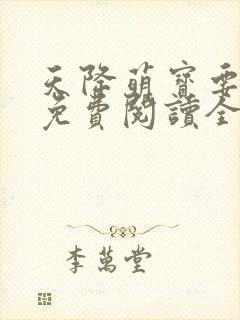 天降萌寶要
免費閱讀全
李萬堂